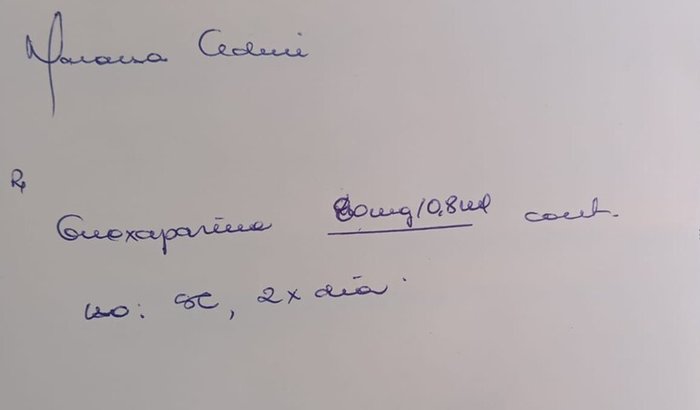 Rp
Enoxaparina 80mg/0,8ml cont.
uso: SC, 2x dia.